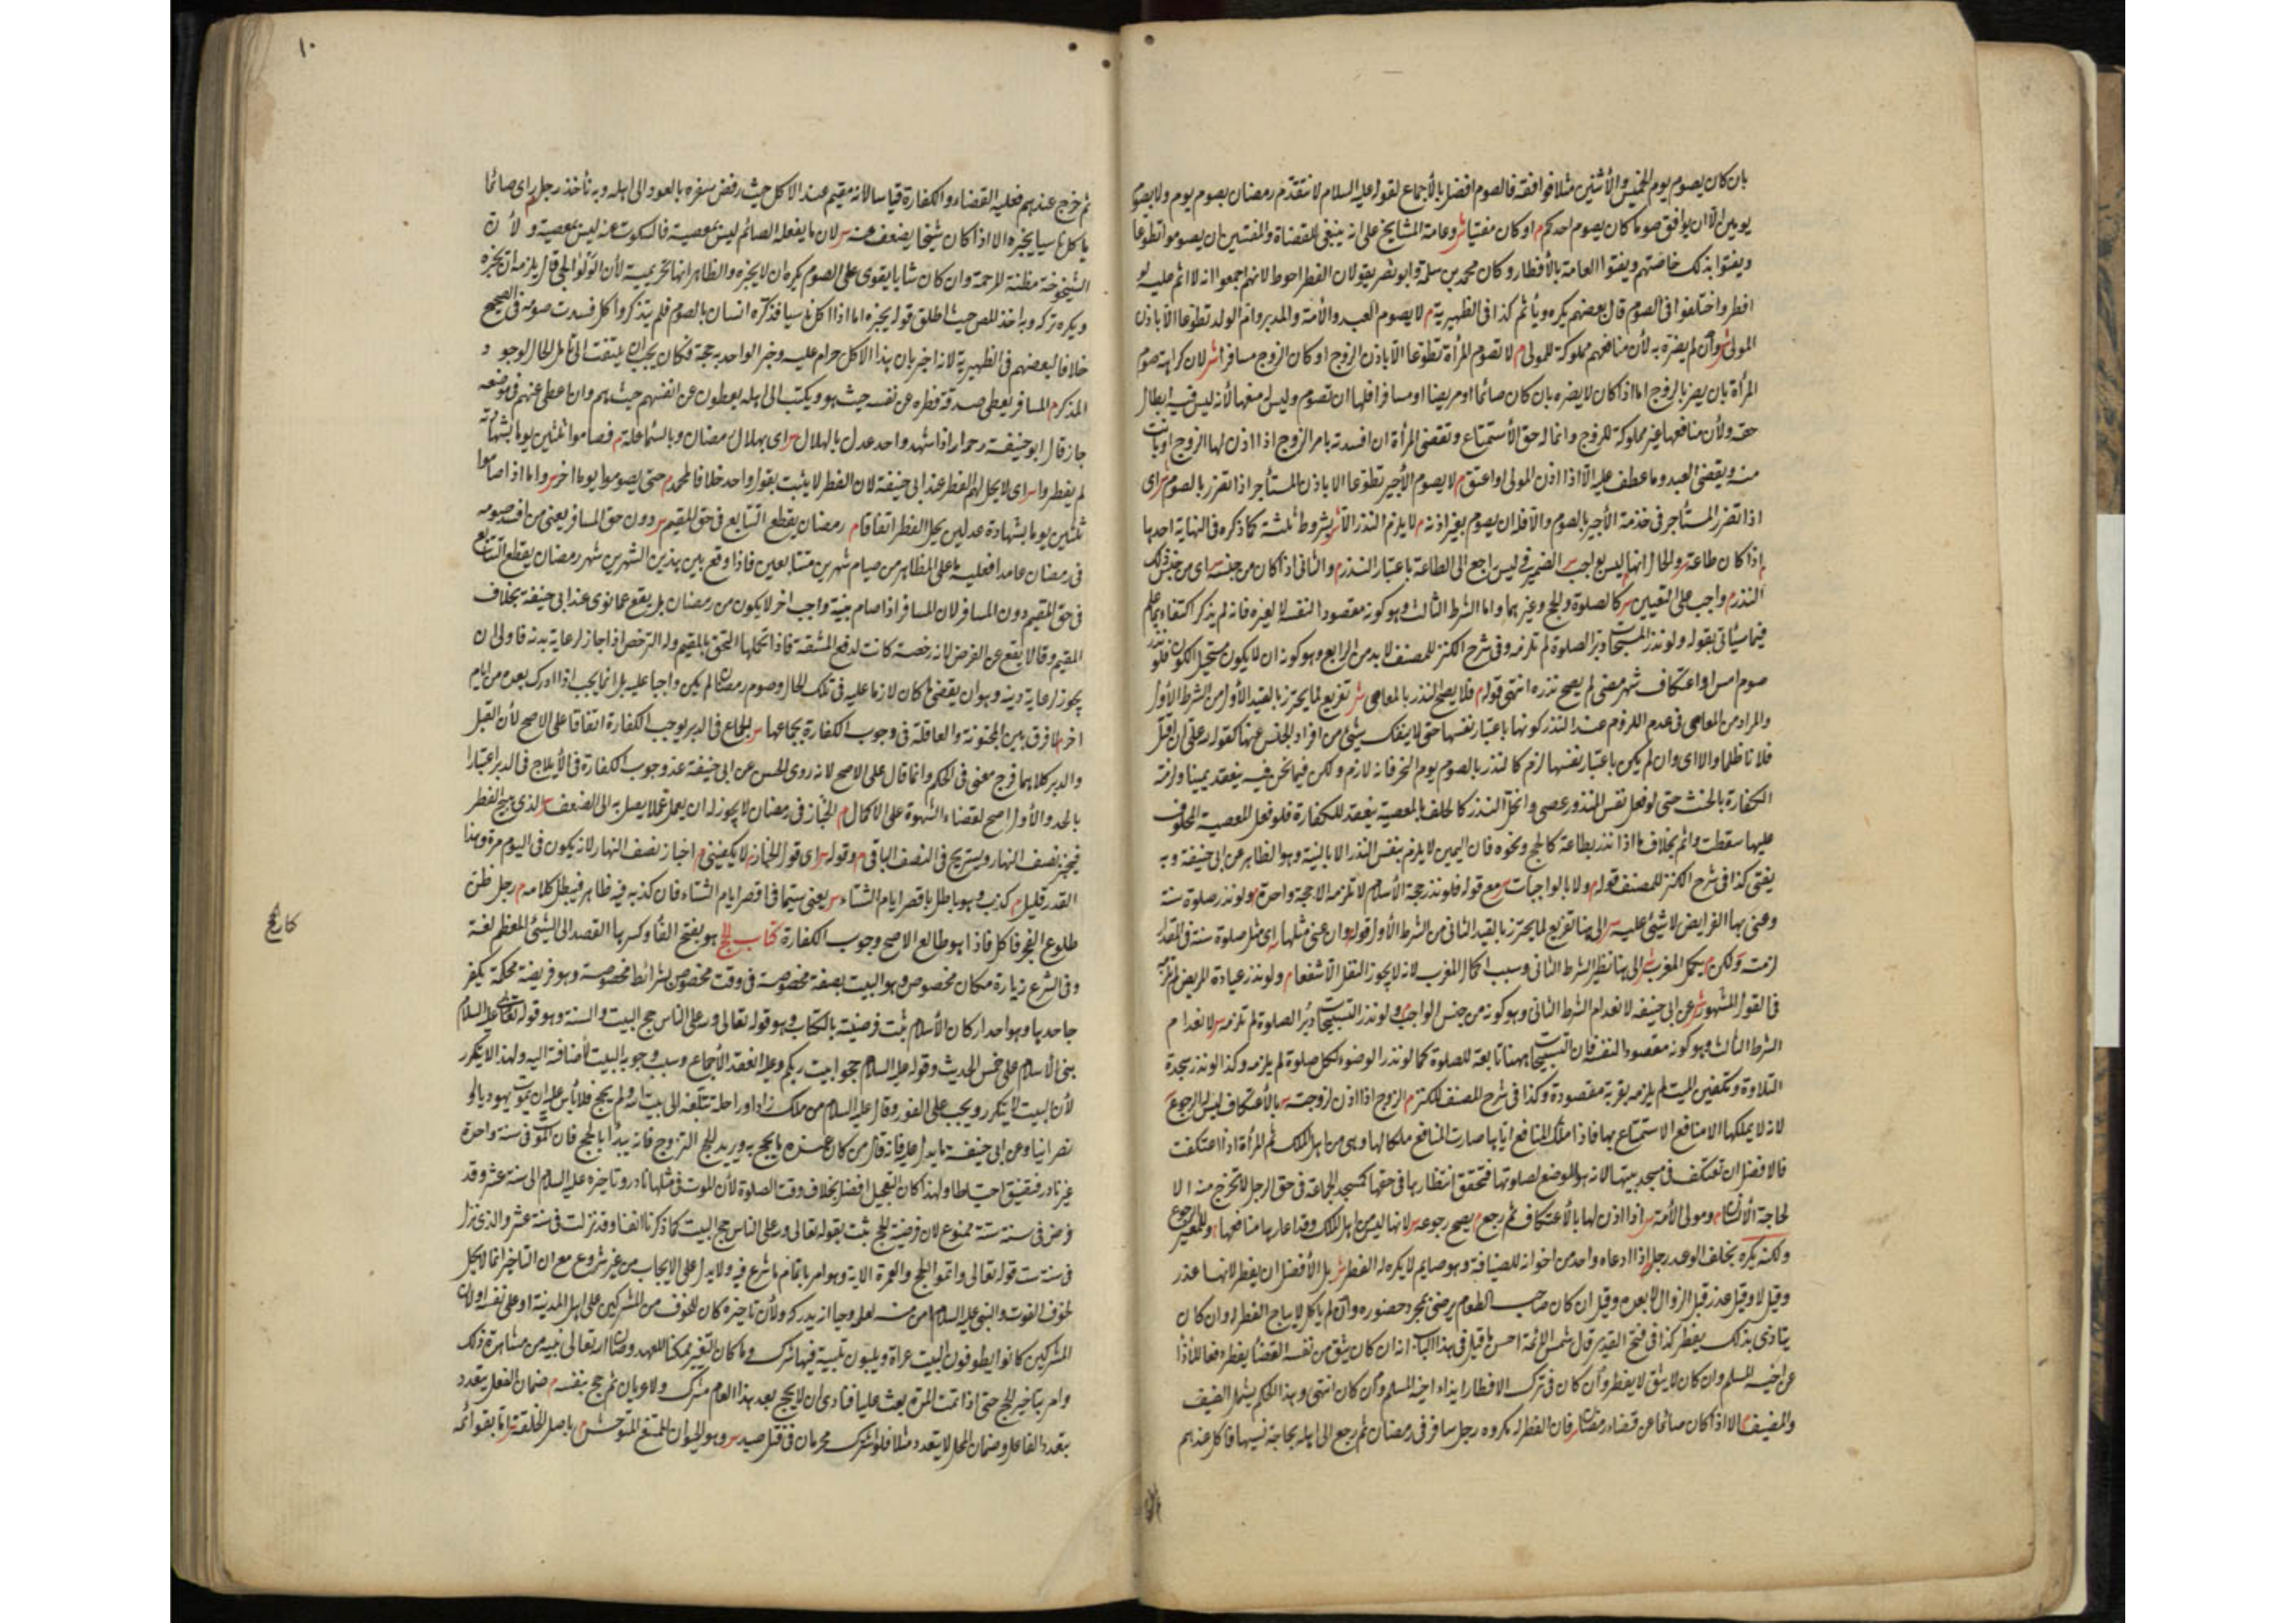 بان كان يصوم يوم الخميس والأثنين مثلا فوافقه فالصوم افضل بالأجماع لقوله عليه السلام لا تتقدم رمضان بصوم يوم ولا بصوم
يومين الا ان يوافق صوما كان يصوم احدكم م او كان مفتيا ش وعامة المشايخ على انه ينبغى للقضاة والمفتيين ان يصوموا تطوعا
ويفتوا بذلك خاصتهم ويفتوا العامة بالأفطار وكان محمد بن سلمة وابو نصر يقولان الفطر احوط لانهم اجمعوا انه لا اثم عليه لو
افطر واختلفوا فى الصوم قال بعضهم يكره ويأثم كذا فى الظهيرية م لا يصوم العبد والأمة والمدبر وام الولد تطوعا الا باذن
المولى ش وان لم يضره به لأن منافعهم مملوكة للمولى م لا تصوم المرأة تطوعا الا باذن الزوج او كان الزوج مسافرا ش لان كراهة صوم
المرأة بان يضر بالزوج اما اذا كان لا يضره بان كان صائما او مريضا او مسافرا فلها ان تصوم وليس له منعها لأنه ليس فيه ابطال
حقه ولأن منافعها غير مملوكة للزوج وانما له حق الأستمتاع وتقضى المرأة ان افسدته بامر الزوج اذا اذن لها الزوج او بانت
منه ويقضى العبد وما عطف عليه الا اذا اذن المولى او اعتق م لا يصوم الأجير تطوعا الا باذن المستأجر اذا تضرر بالصوم ش اى
اذا تضرر المستأجر فى خدمة الأجير بالصوم والا فله ان يصوم بغير اذنه م لا يلزم النذر الا ش بشروط ثلثة كما ذكره فى النهاية احدها
اذا كان طاعة والحال انها ليس بواجب الضمير فى ليس راجع الى الطاعة باعتبار النذر م والثانى اذا كان من جنسه اى من جنس ذلك
النذر م واجب على التعيين ش كالصلوة والحج وغيرهما واما الشرط الثالث وهو كونه مقصودا لنفسه لا لغيره فانه لم يذكر اكتفاء بما علم
فيما سيأتى بقوله ولو نذر التسبيحات دبر الصلوة لم تلزمه وفى شرح الكنز للمصنف لا بد من الرابع وهو كونه ان لا يكون مستحيل الكون فلو نذر
صوم امس او اعتكاف شهر مضى لم يصح نذره انتهى قوله م فلا يصح النذر بالمعاصى ش تفريع لما يحترز بالقيد الأول من الشرط الأول
والمراد من المعاصى فى عدم اللزوم عند النذر كونها باعتبار نفسها حتى لا ينفك بشئ من افراد الجنس عنها كقوله لله على ان اقتل
فلانا ظلما والا اى وان لم يكن باعتبار نفسها لزم كالنذر بالصوم يوم النحر فانه لازم ولكن فيما نحن فيه ينعقد يمينا ولزمته
الكفارة بالحنث حتى لو فعل نفس المنذور عصى وانحل النذر كالحلف بالمعصية ينعقد للكفارة فلو فعل المعصية المحلوف
عليها سقطت واثم بخلاف ما اذا نذر بطاعة كالحج ونحوه فان اليمين لا يلزم بنفس النذر الا بالنية وهو الظاهر عن ابى حنيفة وبه
يفتى كذا فى شرح الكنز للمصنف قوله م ولا بالواجبات مع قوله فلو نذر حجة الأسلام لا تلزمه الا حجة واحدة م ولو نذر صلوة سنة
وعنى بها الفرايض لا شئ عليه ش الى هنا تفريع لما يحترز بالقيد الثانى من الشرط الأول قوله وان عنى مثلها اى مثل صلوة سنة فى المقدار
لزمته ولكن م يكمل المغرب ش الى هنا نظير الشرط الثانى وسبب اكمال المغرب لانه لا يجوز النفل الا شفعا م ولو نذر عيادة المريض لم تلزمه
فى القول المشهور ش عن ابى حنيفة لانعدام الشرط الثانى وهو كونه من جنس الواجب م ولو نذر التسبيحات دبر الصلوة لم تلزمه لانعدام
الشرط الثالث وهو كونه مقصودا لنفسه فان التسبيحات ههنا تابعة للصلوة كما لو نذر الوضوء لكل صلوة لم يلزمه وكذا لو نذر سجدة
التلاوة وتكفين الميت لم يلزمه بقربة مقصودة وكذا فى شرح المصنف للكنز م الزوج اذا اذن لزوجته بالأعتكاف ليس له الرجوع
لانه لا يملكها الا منافع الاستمتاع بها فاذا ملك المنافع اياها صارت المنافع ملكا لها وهى من اهل الملك ثم المرأة اذا اعتكفت
فالافضل ان تعتكف فى مسجد بيتها لانه هو الموضع لصلوتها فتحقق انتظارها فى حقها كمسجد الجماعة فى حق الرجل لا تخرج منه الا
لحاجة الأنسان م ومولى الأمة اذا اذن لها بالأعتكاف ثم رجع م يصح رجوعه لانها ليس من اهل الملك وقد اعارها منافعها وللمعير الرجوع
ولكنه يكره بخلف الوعد رجل اذا دعاه واحد من اخوانه للضيافة وهو صايم لا يكره له الفطر ش بل الأفضل ان يفطر لانها عذر
وقيل لا وقيل عذر قبل الزوال لا بعده وقيل ان كان صاحب الطعام يرضى بمجرد حضوره وان لم يأكل لا يباح الفطر له وان كان
يتاذى بذلك يفطر كذا فى فتح القدير قال شمس الائمة احسن ما قيل فى هذا الباب انه ان كان يثق من نفسه القضاء يفطر دفعا للأذى
عن اخيه المسلم وان كان لا يثق لا يفطر وان كان فى ترك الافطار ايذاء اخيه المسلم وان كان انتهى وهذا الحكم يشمل الضيف
والمضيف الا اذا كان صائما عن قضاء رمضان ش فان الفطر له مكروه رجل سافر فى رمضان ثم رجع الى اهله بحاجة نسيها فاكل عندهم
١٠
ثم خرج عندهم فعليه القضاء والكفارة قياسا لانه مقيم عند الاكل حيث رفض سفره بالعود الى اهله وبه نأخذ رجل م راى صائما
ياكل ناسيا يخبره الا اذا كان شيخا يضعف عنه ش لان ما يفعله الصائم ليس بمعصية فالسكوت عنه ليس بمعصية ولأن
الشيخوخة مظنة للرحمة وان كان شابا يقوى على الصوم يكره ان لا يخبره والظاهر انها تحريمية لأن الولوالجى قال يلزمه ان يخبره
ويكره تركه وبه اخذ المص حيث اطلق قوله يخبره اما اذا اكل ناسيا فذكره انسان بالصوم فلم يتذكر واكل فسدت صومه فى الصحيح
خلافا لبعضهم فى الظهيرية لانه اخبر بان هذا الاكل حرام عليه وخبر الواحد به حجة فكان يجب ان يلتفت الى تأمل الحال لوجود
المذكر م المسافر يعطى صدقة فطره عن نفسه حيث هو ويكتب الى اهله يعطون عن انفسهم حيث هم وان اعطى عنهم فى موضعه
جاز قال ابو حنيفة رحمه الله اذا شهد واحد عدل بالهلال ش اى بهلال رمضان وبالسماء علة م فصاموا ثلثين يوما بشهادته
لم يفطروا ش اى لا يحل لهم الفطر عند ابى حنيفة لان الفطر لا يثبت بقول واحد خلافا لمحمد م حتى يصوموا يوما اخر ش واما اذا صاموا
ثلثين يوما بشهادة عدلين يحل الفطر اتفاقا م رمضان يقطع التتابع فى حق المقيم ش دون حق المسافر يعنى من افسد صومه
فى رمضان عامدا فعليه ما على المظاهر من صيام شهرين متتابعين فاذا وقع بين هذين الشهرين شهر رمضان يقطع التتابع
فى حق المقيم دون المسافر لان المسافر اذا صام بنية واجب اخر لا يكون من رمضان بل يقع عما نوى عند ابى حنيفة بخلاف
المقيم وقالا يقع عن الفرض لانه رخصة كانت لدفع المشقة فاذا تحملها التحق بالمقيم وله الترخص اذا جاز لرعاية بدنه فاولى ان
يجوز لرعاية دينه وهو ان يقضى ما كان لازما عليه فى تلك الحال وصوم رمضان لم يكن واجبا عليه بل انما يجب اذا ادرك بعده من ايام
اخر م لا فرق بين المجنونة والعاقلة فى وجوب الكفارة بجماعها ش الجماع فى الدبر يوجب الكفارة اتفاقا على الاصح لأن القبل
والدبر كلاهما فرج معنى فى الحكم وانما قال على الاصح لانه روى الحسن عن ابى حنيفة عدم وجوب الكفارة فى الأيلاج فى الدبر اعتبارا
بالحد والأول اصح لقضاء الشهوة على الاكمال م الخباز فى رمضان لا يجوز له ان يعمل عملا يصل به الى الضعف ش الذى يبيح الفطر
فيخبز نصف النهار ويستريح فى النصف الباقى م وقوله ش اى قول الخباز م لا يكفينى م اخباز نصف النهار لانه يكون فى اليوم مرة وهذا
القدر قليل م كذب وهو باطل باقصر ايام الشتاء ش يعنى سيما فى اقصر ايام الشتاء فان كذبه فيه ظاهر فيبطل كلامه م رجل ظن
طلوع الفجر فاكل فاذا هو طالع الاصح وجوب الكفارة كتاب الحج هو بفتح الفاء وكسرها القصد الى الشئ المعظم لغة
كتاب الحج
وفى الشرع زيارة مكان مخصوص وهو البيت بصفة مخصوصة فى وقت مخصوص بشرائط مخصوصة وهو فريضة محكمة يكفر
جاحدها وهو احد اركان الأسلام ثبت فرضيته بالكتاب وهو قوله تعالى ولله على الناس حج البيت والسنة وهو قوله عليه السلام
بنى الأسلام على خمس الحديث وقوله عليه السلام حجوا بيت ربكم وعليه انعقد الأجماع وسبب وجوبه البيت لأضافته اليه ولهذا لا يتكرر
لأن البيت لا يتكرر ويجب على الفور وقال عليه السلام من ملك زادا وراحلة تبلغه الى بيت الله ولم يحج فلا بأس عليه ان يموت يهوديا او
نصرانيا وعن ابى حنيفة ما يدل عليه فانه قال من كان عنده ما يحج به ويريد للحج التزوج فانه يبدأ بالحج فان الموت فى سنة واحدة
غير نادر فتضيق احتياطا ولهذا كان التعجيل افضل بخلاف وقت الصلوة لأن الموت فى مثلها نادر وتاخيره عليه السلام الى سنة عشر وقد
فرض فى سنة ستة ممنوع لان فرضية الحج ثبت بقوله تعالى ولله على الناس حج البيت كما ذكرنا انفا وقد نزلت فى سنة عشر والذى نزل
فى سنة ست قوله تعالى واتموا الحج والعمرة الاية وهو امر باتمام ما شرع فيه ولا يدل على الايجاب من غير شروع مع ان التاخير انما لا يحل
لخوف الفوت والنبى عليه السلام امن منه لعله وحيا انه يدركه ولأن تاخيره كان للخوف من المشركين على اهل المدينة او على نفسه اولأن
المشركين كانوا يطوفون البيت عراة ويلبون تلبية فيها شرك وما كان التغير ممكنا للعهد وصان الله تعالى نبيه من مشاهدة ذلك
وامر بتاخير الحج حتى اذا تمت المدة بعث عليا فنادى ان لا يحج بعد هذا العام مشرك ولا عريان ثم حج بنفسه م ضمان الفعل يتعدد
بتعدد الفاعل وضمان المحل لا يتعدد مثلا فلو اشترك محرمان فى قتل صيد ش وهو الحيوان الممتنع المتوحش م باصل الخلقة ش اما بقوائمه